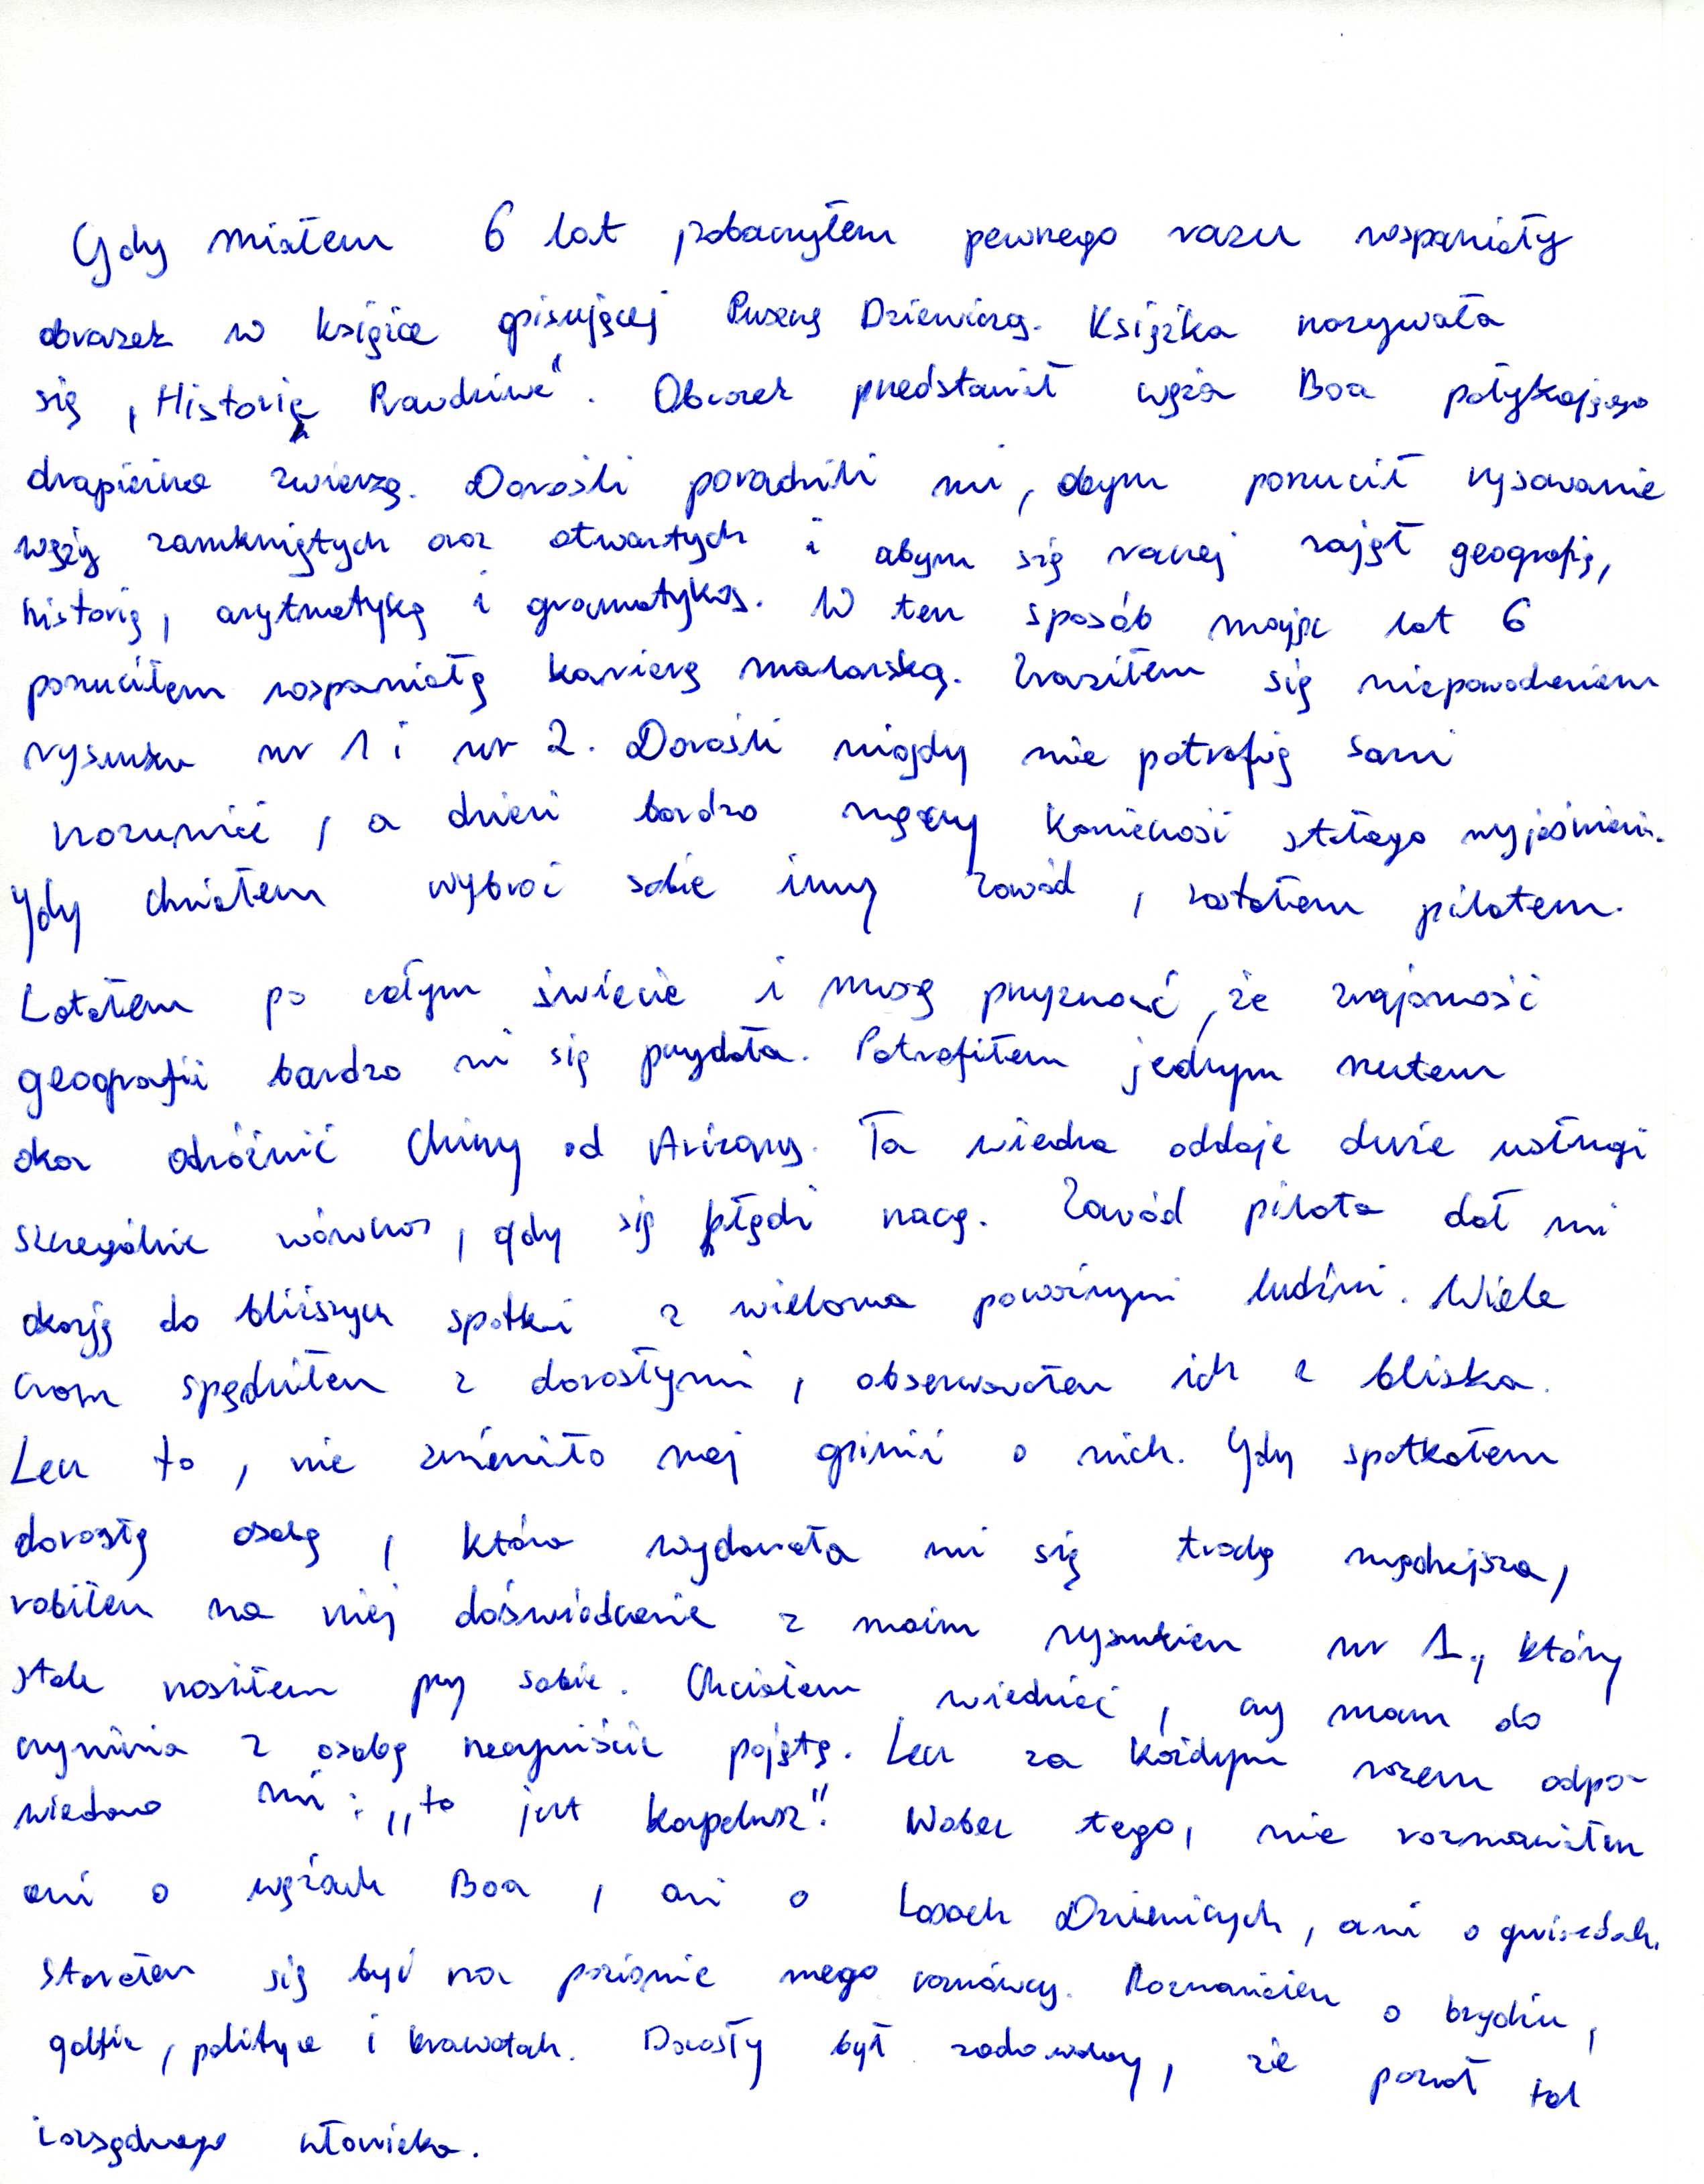 Gdy miałem 6 lat zobaczyłem pewnego razu wspaniały
obrazek w książce opisującej Puszczę Dziewiczą. Książka nazywała
się „Historię Prawdziwe". Obrazek przedstawił węża Boa połykającego
drapieżne zwierzę. Dorośli poradzili mi, abym porzucił rysowanie
węży zamkniętych oraz otwartych i abym się raczej zajął geografią,
historią, arytmetyką i gramatyką. W ten sposób mając lat 6
porzuciłem wspaniałą karierę malarską. Zraziłem się niepowodzeniem
rysunku nr 1 i nr 2. Dorośli nigdy nie potrafią sami
zrozumieć, a dzieci bardzo męczy konieczność stałego wyjaśniania.
Gdy chciałem wybrać sobie inny zawód, zostałem pilotem.
Latałem po całym świecie i muszę przyznać, że znajomość
geografii bardzo mi się przydała. Potrafiłem jednym rzutem
oka odróżnić Chiny od Arizony. Ta wiedza oddaje duże usługi
szczególnie wówczas, gdy się błądzi nocą. Zawód pilota dał mi
okazję do bliższych spotkań z wieloma poważnymi ludźmi. Wiele
czasu spędziłem z dorosłymi, obserwowałem ich z bliska.
Lecz to, nie zmieniło mej opinii o nich. Gdy spotkałem
dorosłą osobę, która wydawała mi się trochę mądrzejsza,
robiłem na niej doświadczenie z moim rysunkiem nr 1., który
stale nosiłem przy sobie. Chciałem wiedzieć, czy mam do
czynienia z osobą rzeczywiście pojętą. Lecz za każdym razem odpo-
wiadano mi: „to jest kapelusz". Wobec tego, nie rozmawiałem
ani o wężach Boa, ani o Lasach Dziewiczych, ani o gwiazdach.
Starałem się być na poziomie mego rozmówcy. Rozmawiałem o brydżu,
golfie, polityce i krawatach. Dorosły był zadowolony, że poznał tak
rozsądnego człowieka.